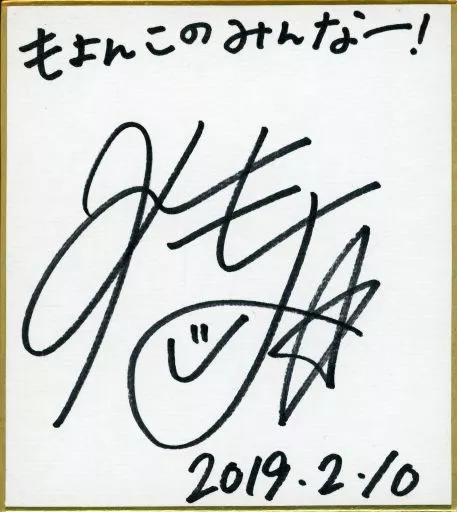 もよんこのみんなー!
みもよ☆
2019.2.10